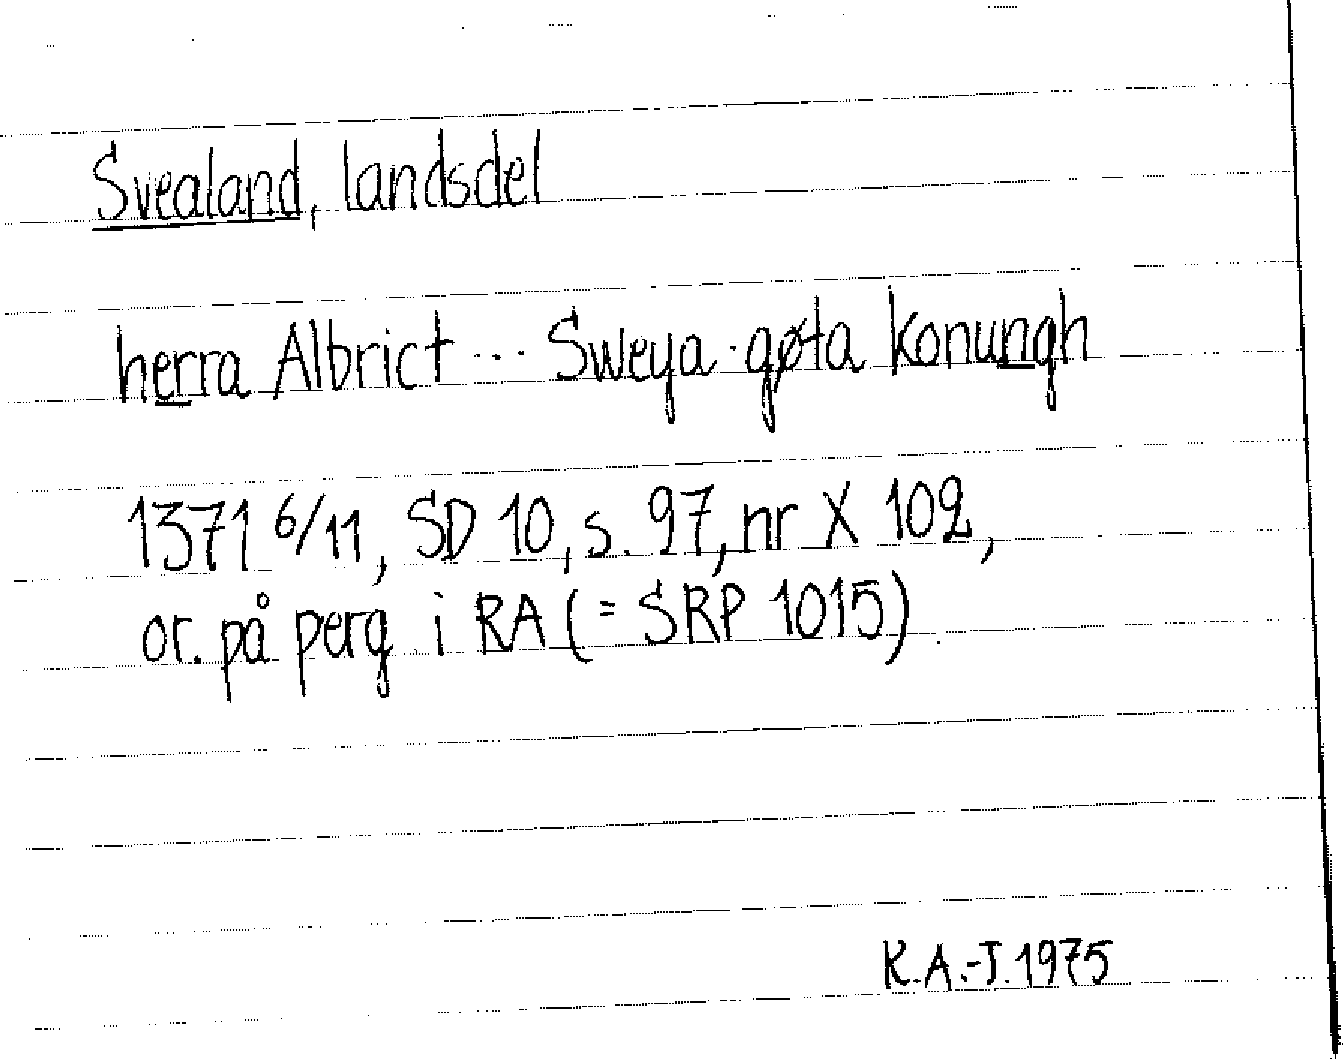 Svealand, landsdel
herra Albrict ... Sweya · gøta konungh
1371 6/11, SD 10, s. 97, nr X 102,
or. på perg. i RA (= SRP 1015).
K.A.-J. 1975